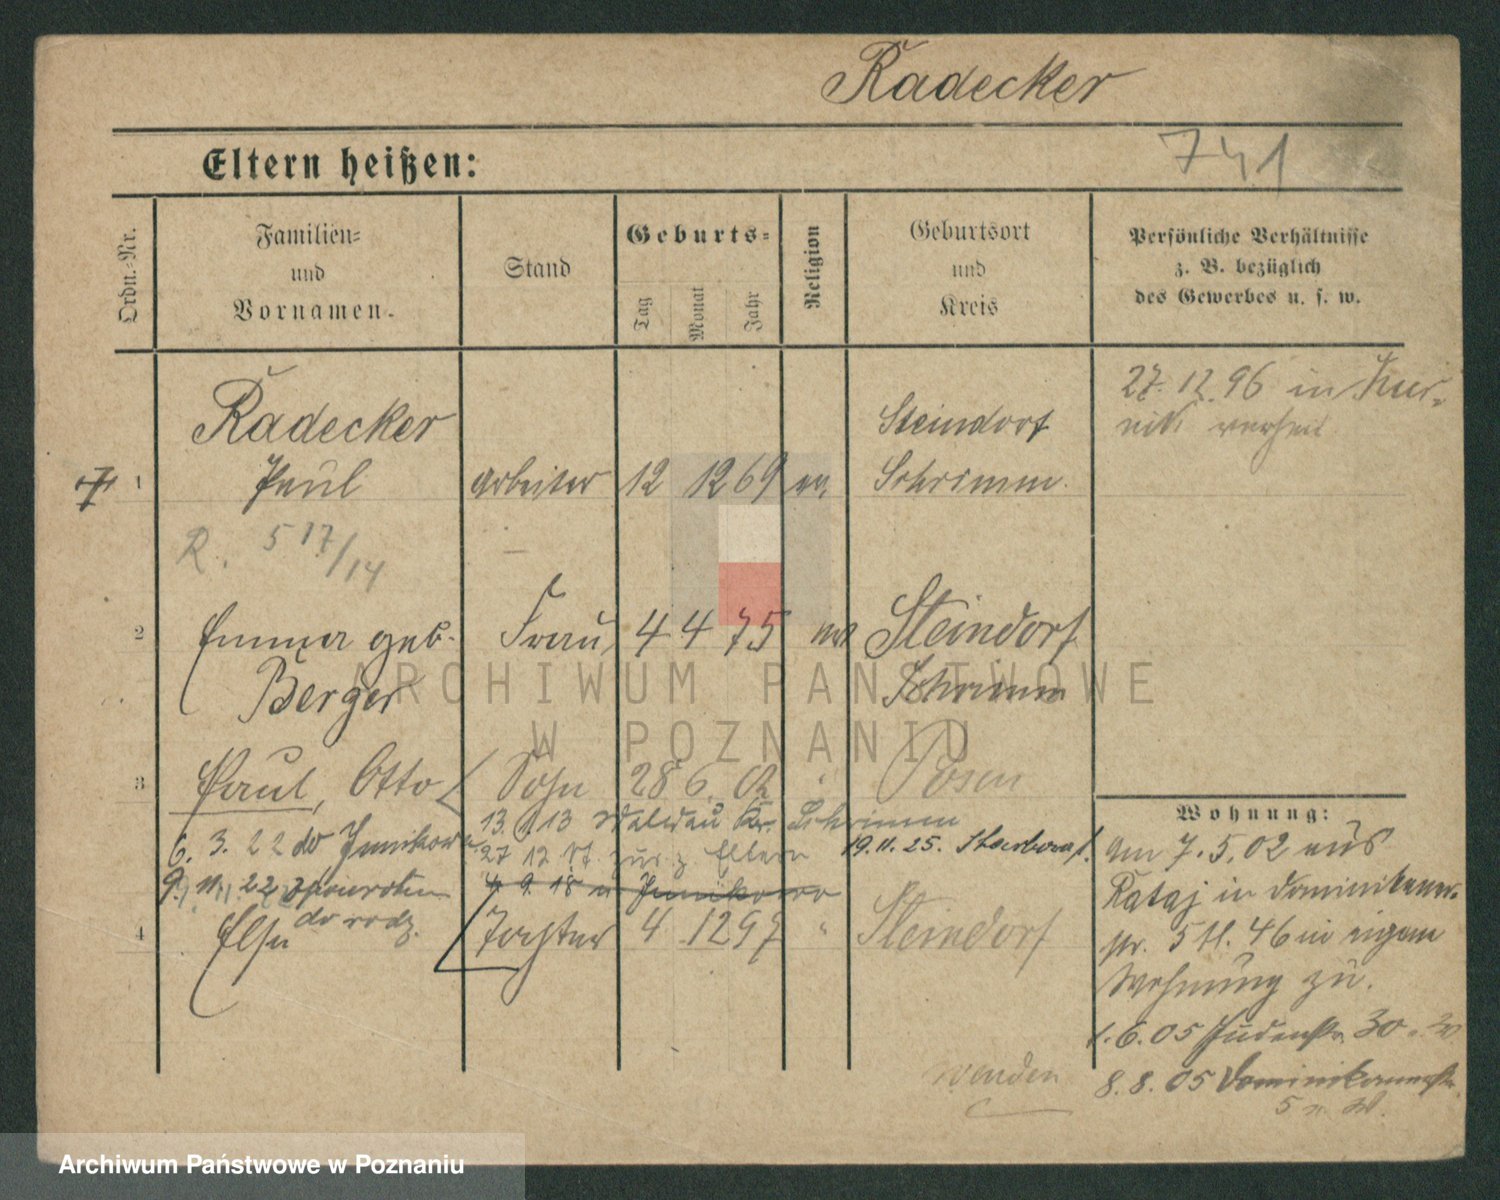 Radecker
741
Eltern heißen:
Ordn.-Nr.
Familien-
und
Vornamen.
Stand
Geburts-
Tag
Monat
Jahr
Religion
Geburtsort
und
Kreis
Persönliche Verhältnisse
z. B. bezüglich
des Gewerbes u. s. w.
27. 12. 96 in Kur-
nik verheir.
Radecker
Steindorf
1 Paul Arbeiter 12 12 69 ev. Schrimm.
R. 517/14
2 Emma geb. Frau 4 4 75 ev Steindorf
Berger Schrimm
3 Paul, Otto Sohn 28 6 02 " Posen
13. 1. 13 Waldau Kr. Schrimm
6. 3. 22 do Junikowa
27 12 17 zur. z. Eltern 19.11.25.
9. 11. 22 z powrotem
4. 9. 18 n Junikowo
do rodz.
4 Else Tochter 4 12 97 " Steindorf
Wohnung:
Am 7. 5. 02 aus
Rataj in Dominikaner-
str. 5 II. 46 in eigene
Wohnung zu.
1. 6. 05 Judenstr. 30
8. 8. 05 Dominikanerstr.
5
wenden
ARCHIWUM PAŃSTWOWE
W POZNANIU
Archiwum Państwowe w Poznaniu